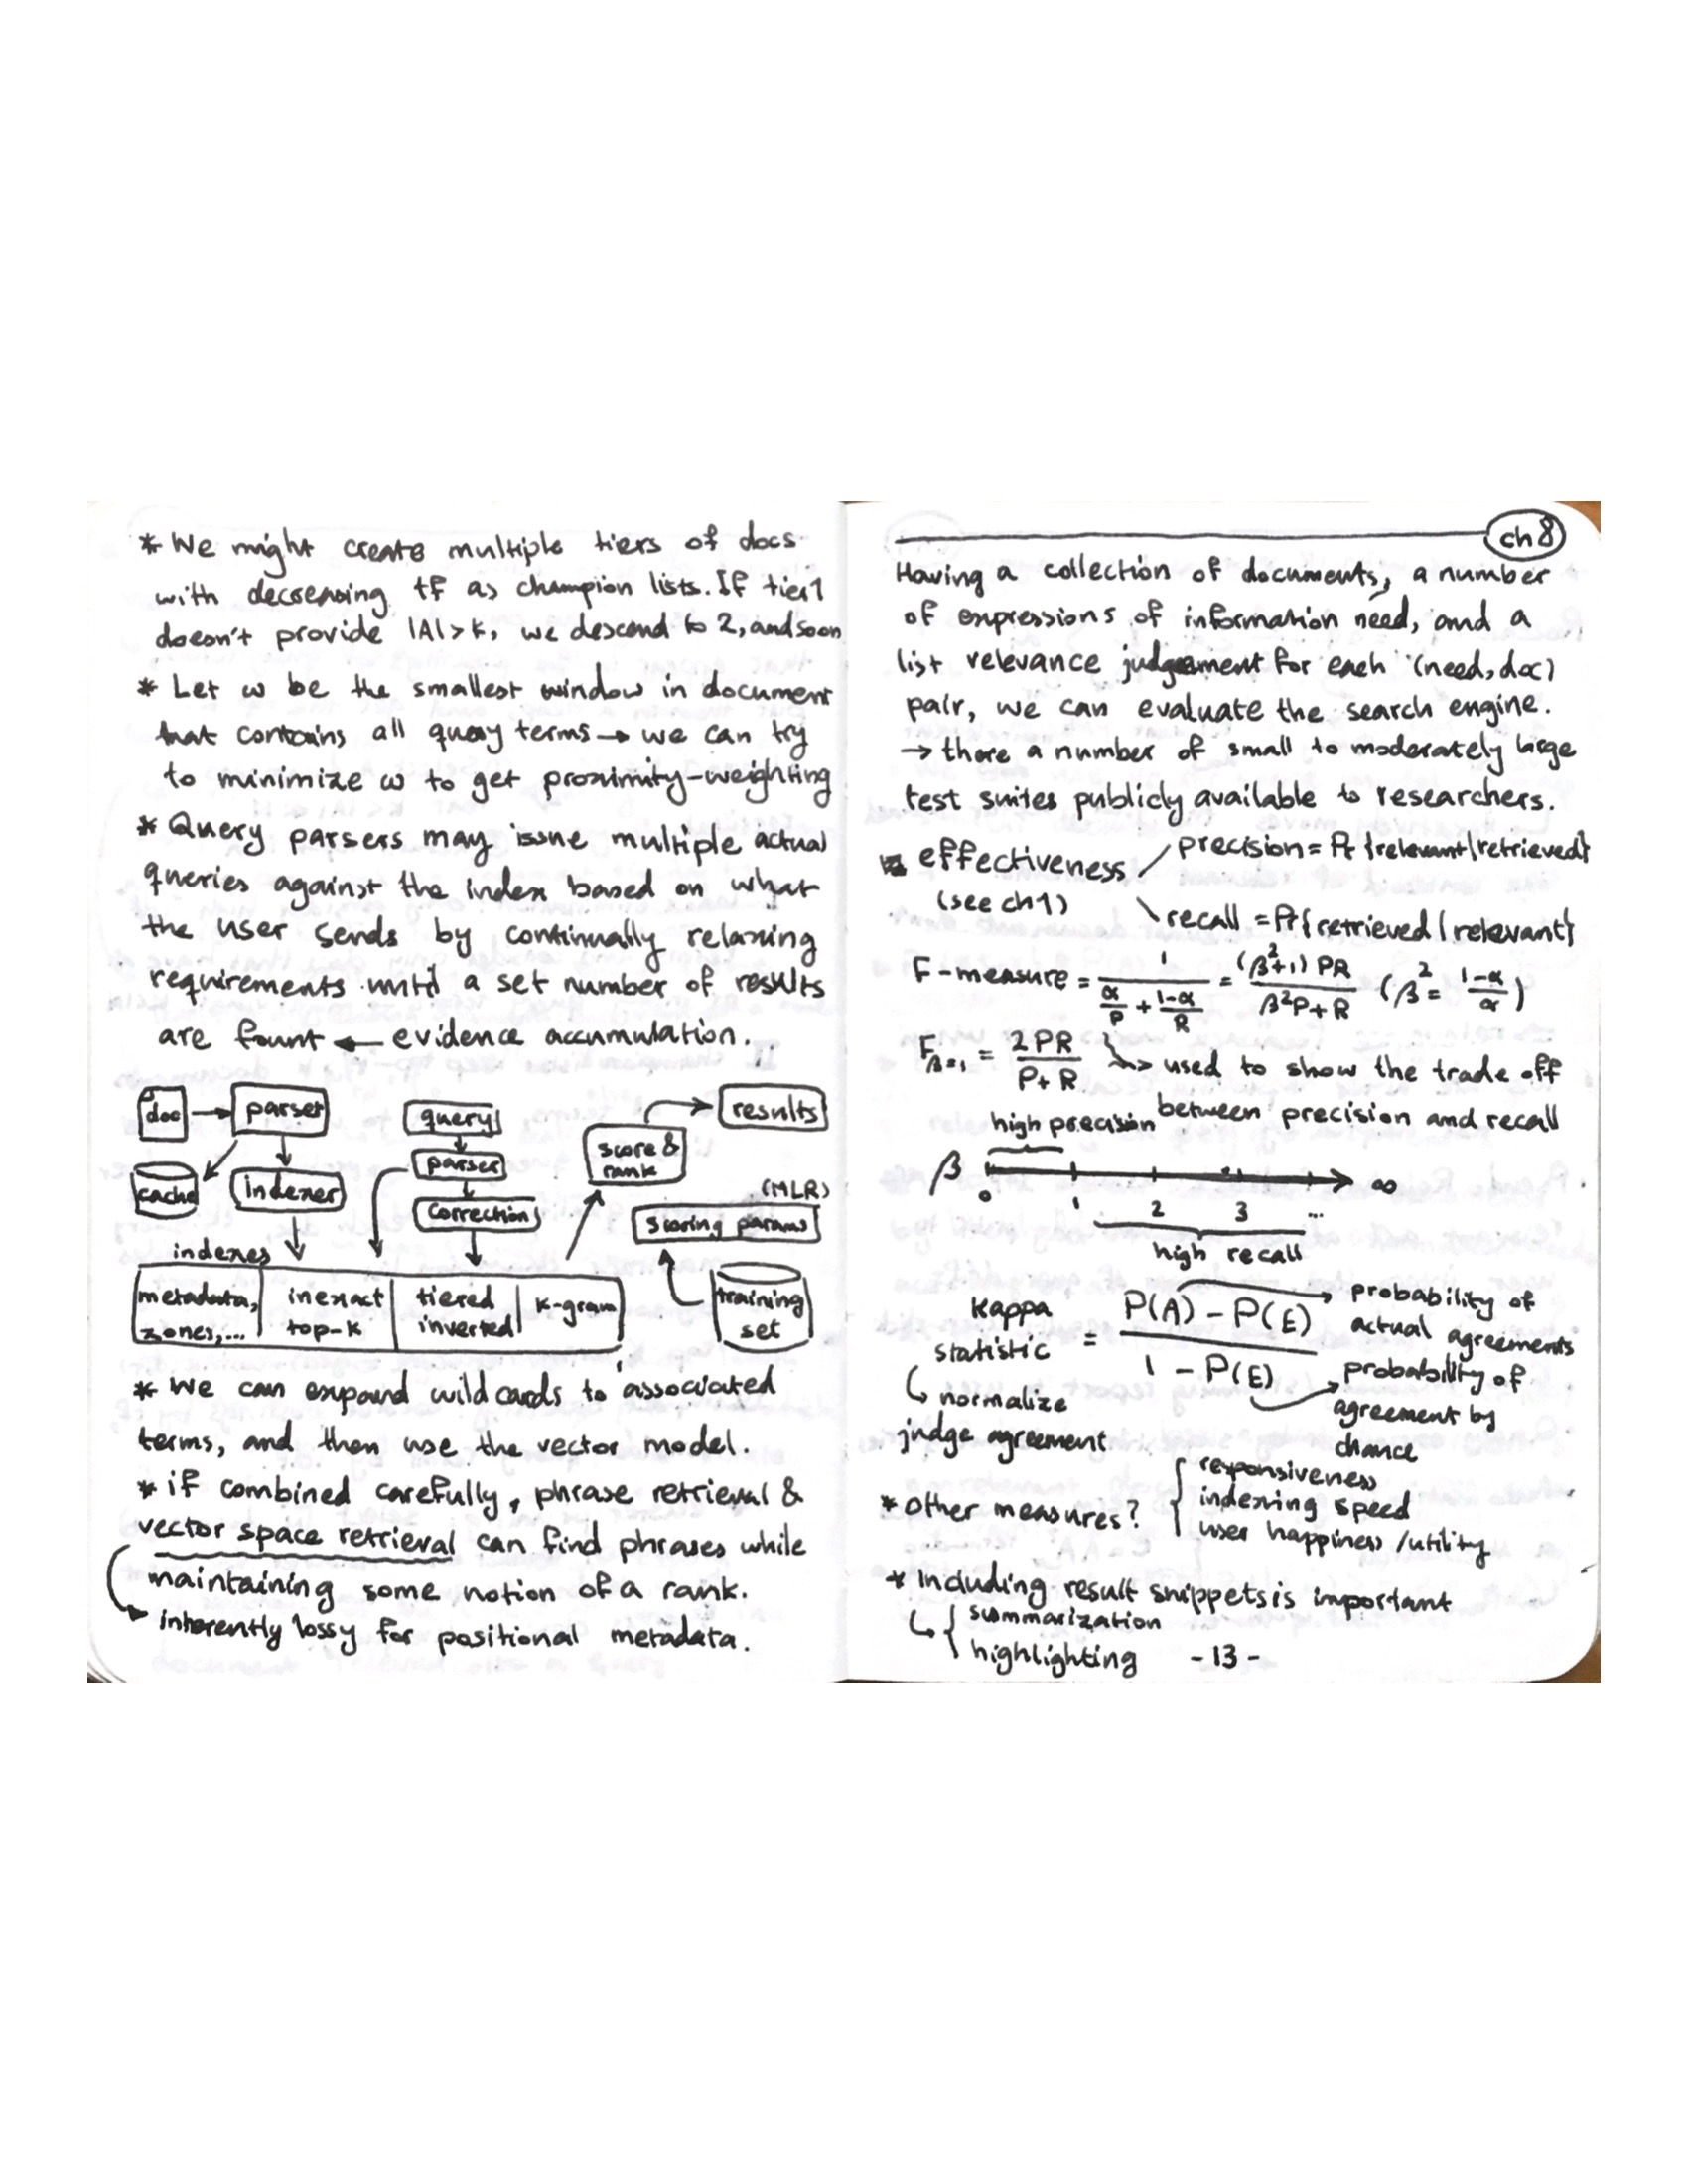 * We might create multiple tiers of docs
with decreasing tf as champion lists. If tier1
doesn't provide |A|>k, we descend to 2, and so on
* Let ω be the smallest window in document
that contains all query terms → we can try
to minimize ω to get proximity-weighting
* Query parsers may issue multiple actual
queries against the index based on what
the user sends by continually relaxing
requirements until a set number of results
are fount ← evidence accumulation.
doc → parser
cache
indexer
query
parser
correction
score &
rank
results
(MLR)
scoring params
training
set
indexes
metadata,
zones,...
inexact
top-k
tiered
inverted
k-gram
* We can expand wild cards to associated
terms, and then use the vector model.
* if combined carefully, phrase retrieval &
vector space retrieval can find phrases while
maintaining some notion of a rank.
inherently lossy for positional metadata.
ch 8
Having a collection of documents, a number
of expressions of information need, and a
list relevance judgement for each (need, doc)
pair, we can evaluate the search engine.
→ there a number of small to moderately large
test suites publicly available to researchers.
effectiveness
(see ch1)
precision = Pr {relevant|retrieved}
recall = Pr{retrieved|relevant}
F-measure = 1 / (α/P + (1-α)/R) = (β²+1) PR / (β²P+R) (β² = (1-α)/α)
Fβ=1 = 2PR / (P+R) → used to show the trade off
between precision and recall
high precision
β 0 1 2 3 ... ∞
high recall
kappa
statistic = (P(A) - P(E)) / (1 - P(E))
normalize
judge agreement
probability of
actual agreements
probability of
agreement by
chance
* Other measures? { responsiveness
indexing speed
user happiness/utility
* Including result snippets is important
{ summarization
highlighting
-13-